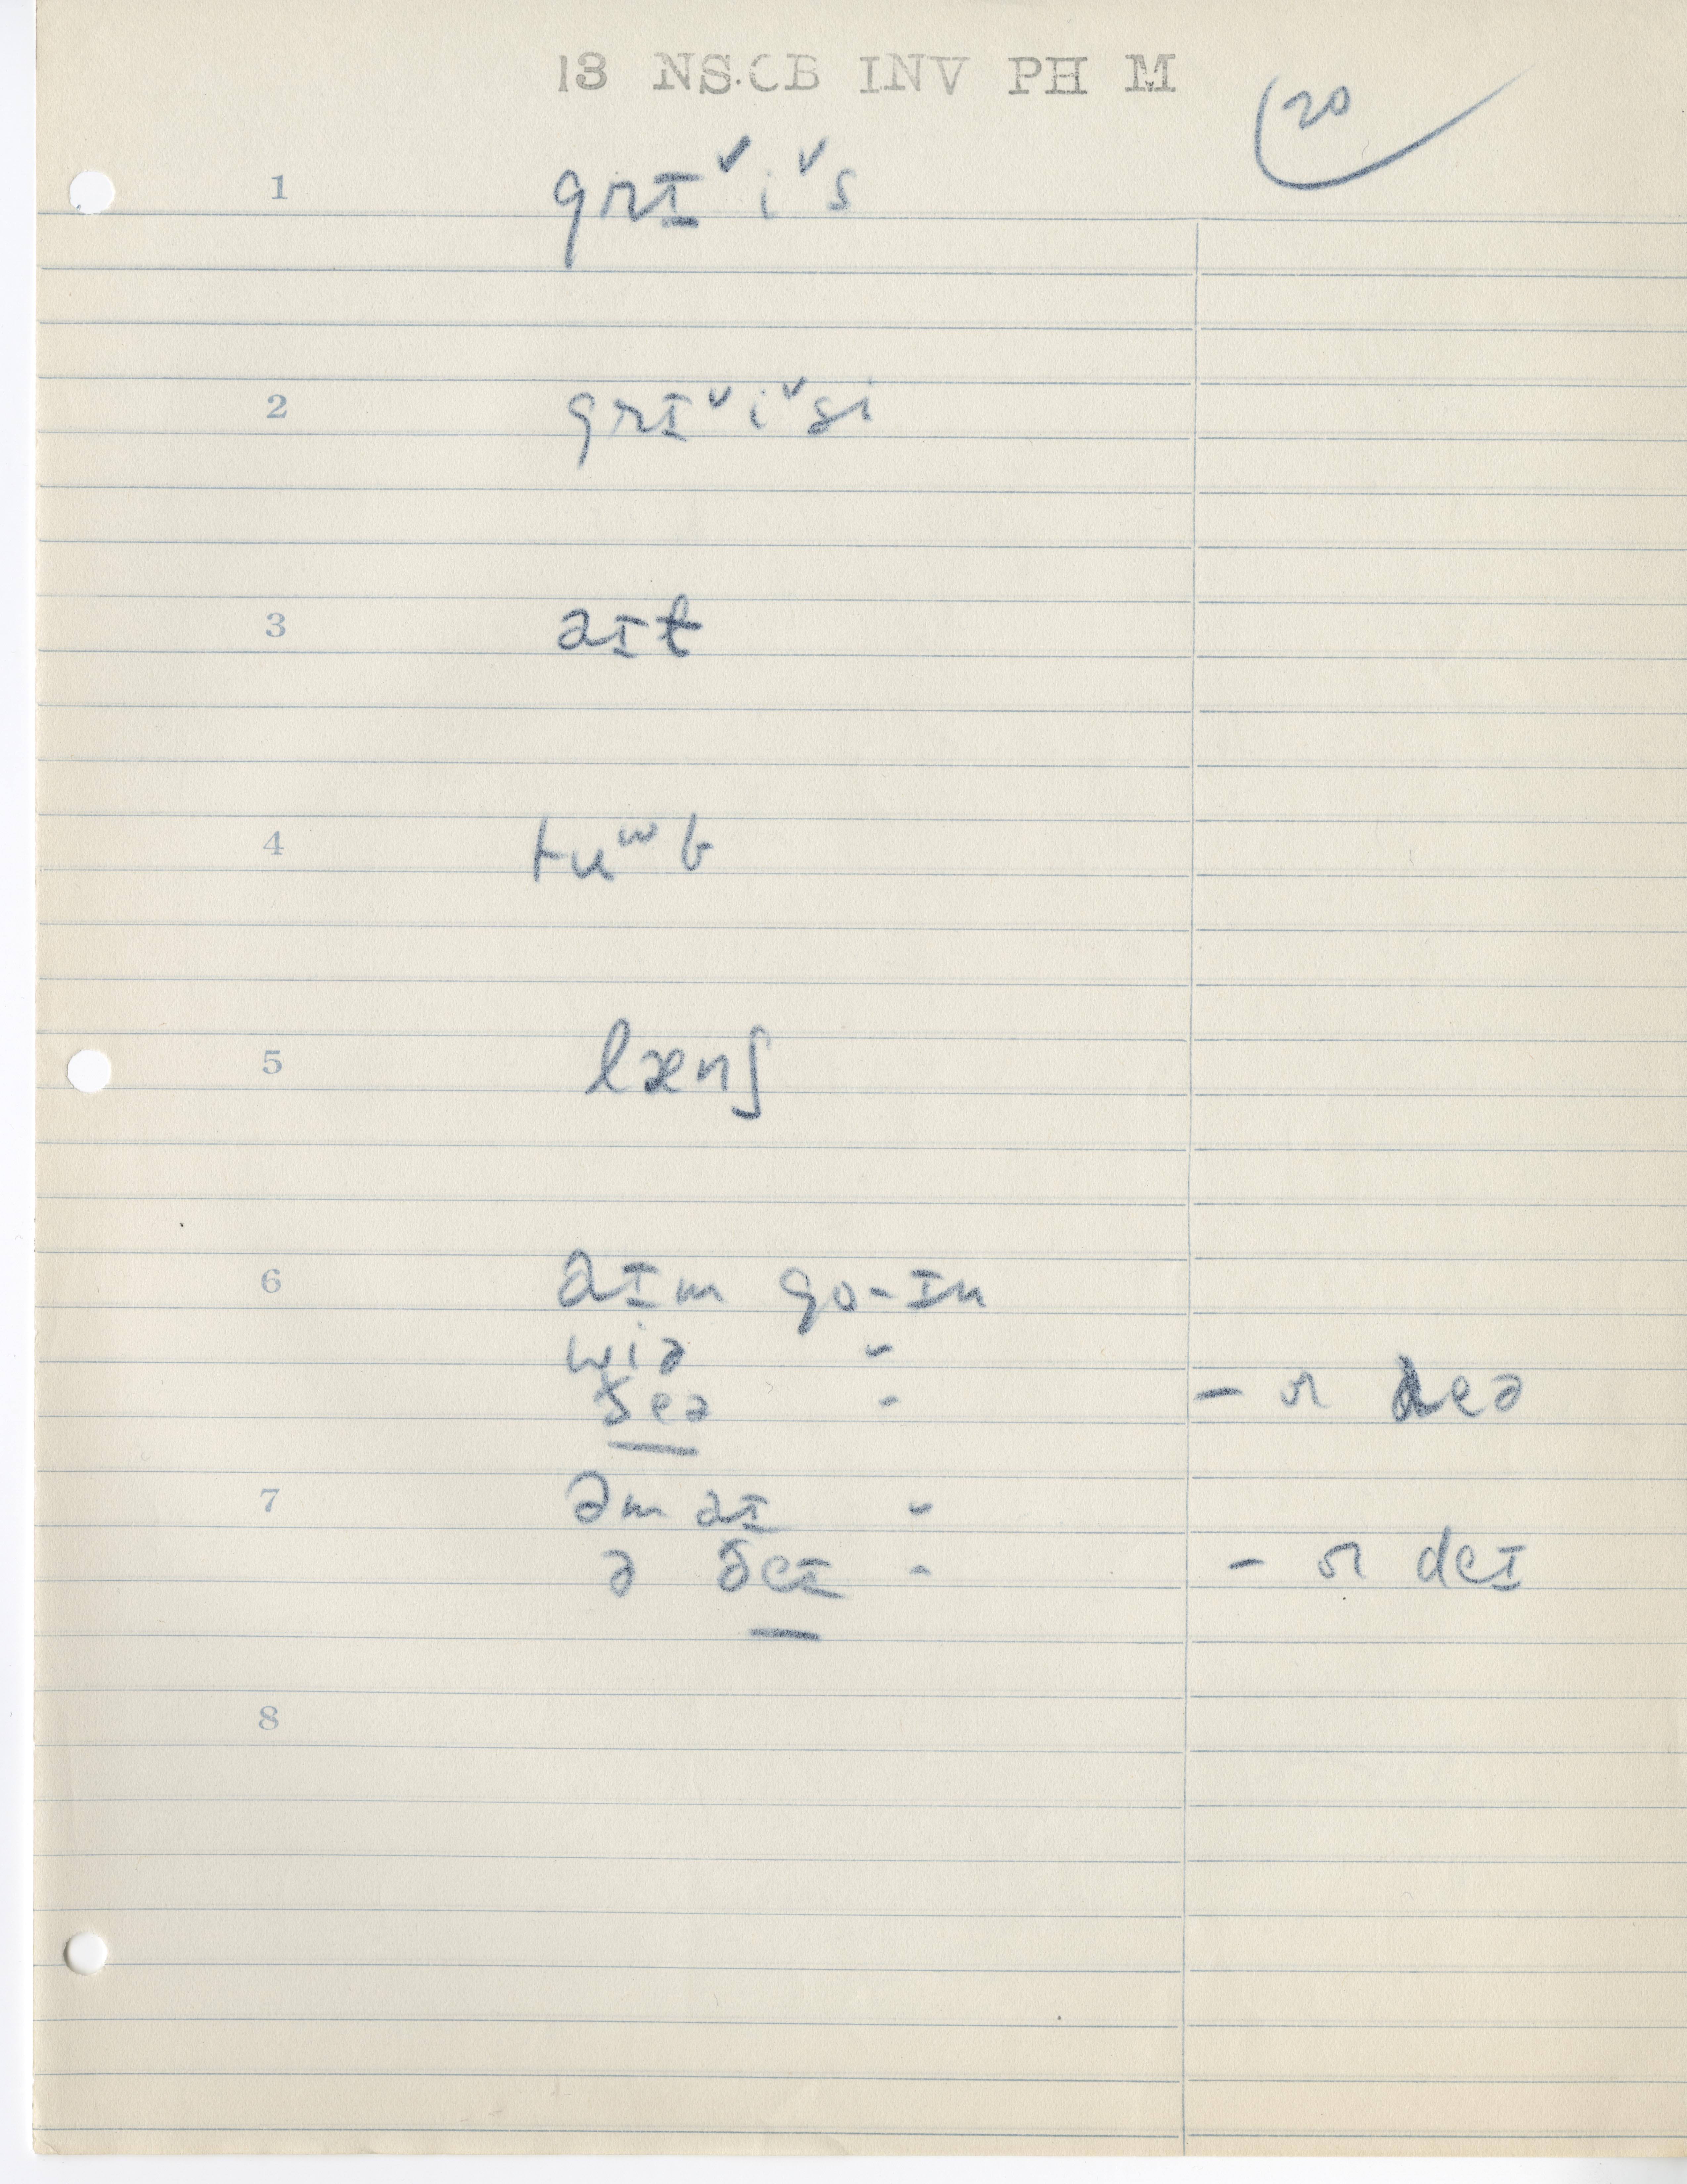 13 NS.CB INV PH M
20
1 grɪˇiˇs
2 grɪˇiˇsi
3 aɪt
4 tuʷb
5 lænʃ
6 aɪm go-ɪn
wiə "
ðeə " – or deə
7 əm aɪ "
ə ðeɪ " – or deɪ
8